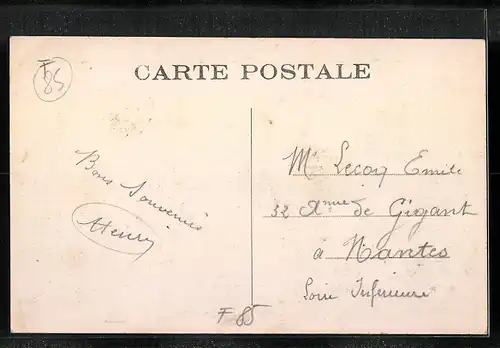 F
85
CARTE POSTALE
Bons Souvenirs
Henri
Mr Lecoq Emile
32 de Gigant
à Nantes
Loire Inférieure
F 85